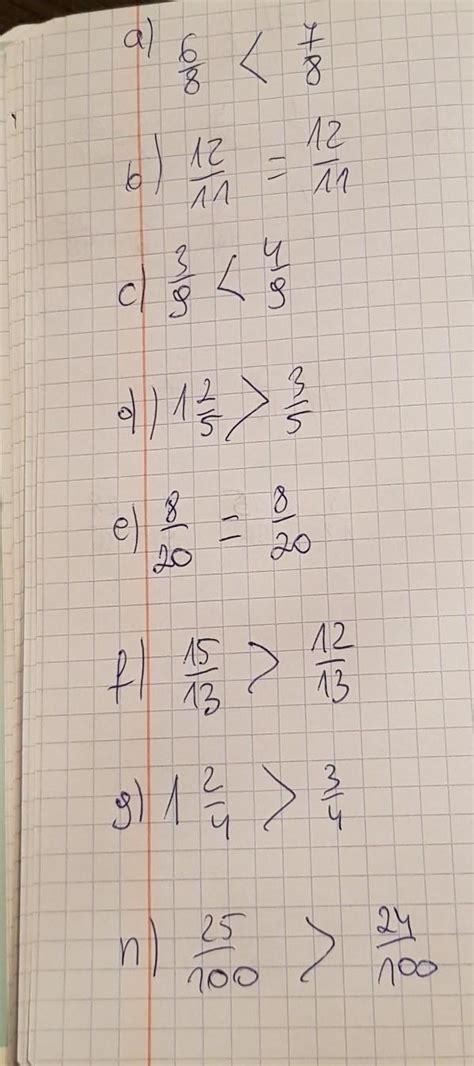 a) 6/8 < 7/8
b) 12/11 = 12/11
c) 3/9 < 4/9
d) 1 2/5 > 3/5
e) 8/20 = 8/20
f) 15/13 > 12/13
g) 1 2/4 > 3/4
h) 25/100 > 24/100